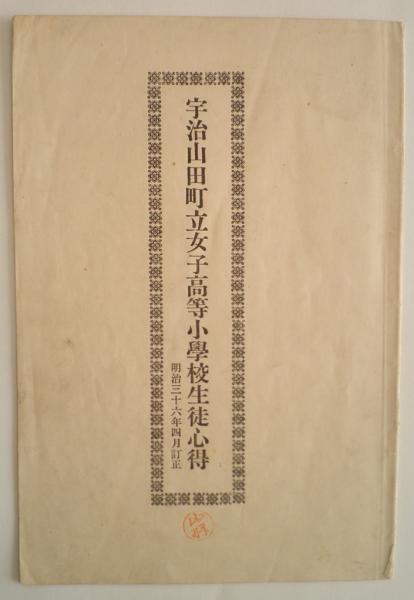 宇治山田町立女子高等小學校生徒心得
明治三十六年四月訂正